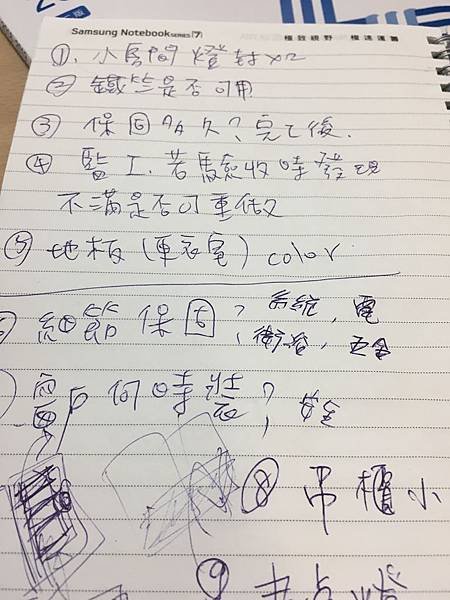 Samsung Notebook SERIES 7 極致視野 極速運籌
①. 小房間燈封x2
② 鐵是否可用
③ 保固多久?完工後.
④ 監工.若驗收時發現
不滿是否可重做
⑤ 地板(更衣室) color
細節保固? 系統, 電
衛浴, 五金
窗戶何時裝?
⑧ 吊櫃小
⑨ 燈